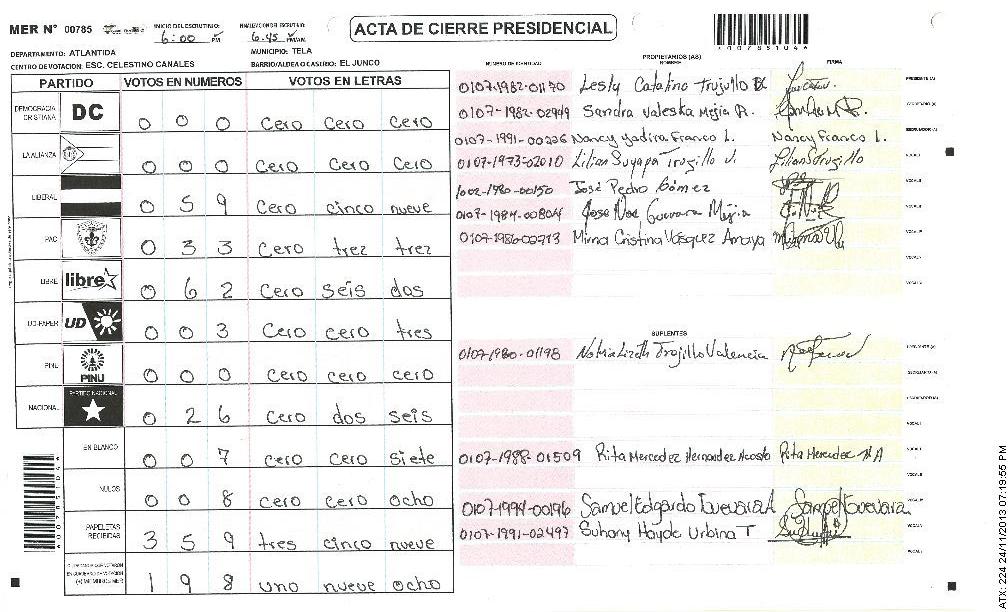 MER N° 00785
INICIO DEL ESCRUTINIO: 6:00 PM
6:45 PM/AM
ACTA DE CIERRE PRESIDENCIAL
DEPARTAMENTO: ATLANTIDA
MUNICIPIO: TELA
CENTRO DE VOTACION: ESC. CELESTINO CANALES
BARRIO/ALDEA O CASERIO: EL JUNCO
PARTIDO VOTOS EN NUMEROS VOTOS EN LETRAS
DEMOCRACIA CRISTIANA DC 0 0 0 cero cero cero
LA ALIANZA 0 0 0 cero cero cero
LIBERAL 0 5 9 cero cinco nueve
PAC 0 3 3 cero trez trez
LIBRE libre 0 6 2 cero seis dos
UD-PAPER UD 0 0 3 cero cero tres
PINU PINU 0 0 0 cero cero cero
NACIONAL PARTIDO NACIONAL 0 2 6 cero dos seis
EN BLANCO 0 0 7 cero cero siete
NULOS 0 0 8 cero cero ocho
PAPELETAS RECIBIDAS 3 5 9 tres cinco nueve
(+) MIEMBROS MER 1 9 8 uno nueve ocho
NUMERO DE IDENTIDAD
PROPIETARIOS (AS)
NOMBRE
FIRMA
0107-1982-01170 Lesly Catalino Trujillo
PRESIDENTE (A)
0107-1982-02949 Sandra Valeska Mejia R.
SECRETARIO (A)
0107-1991-00226 Nancy Yadira Franco L. Nancy Franco L.
ESCRUTADOR (A)
0107-1973-02010 Lilian Suyapa Trugillo J. Lilian Trugillo
VOCAL 1
1002-1980-00150 José Pedro Gómez
0107-1984-00804 Jose Noe Guevara Mejia
0107-1986-02713 Mirna Cristina Vásquez Amaya
SUPLENTES
0107-1980-01198 Trojillo Valencia
0107-1988-01509 Rita Mercedez Hernandez Acosta Rita Mercedez H A
0107-1994-00196 Samuel Edgardo Guevara A Samuel Guevara
0107-1991-02497 Suhany Hayde Urbina T
ATX: 224 24/11/2013 07:19:55 PM